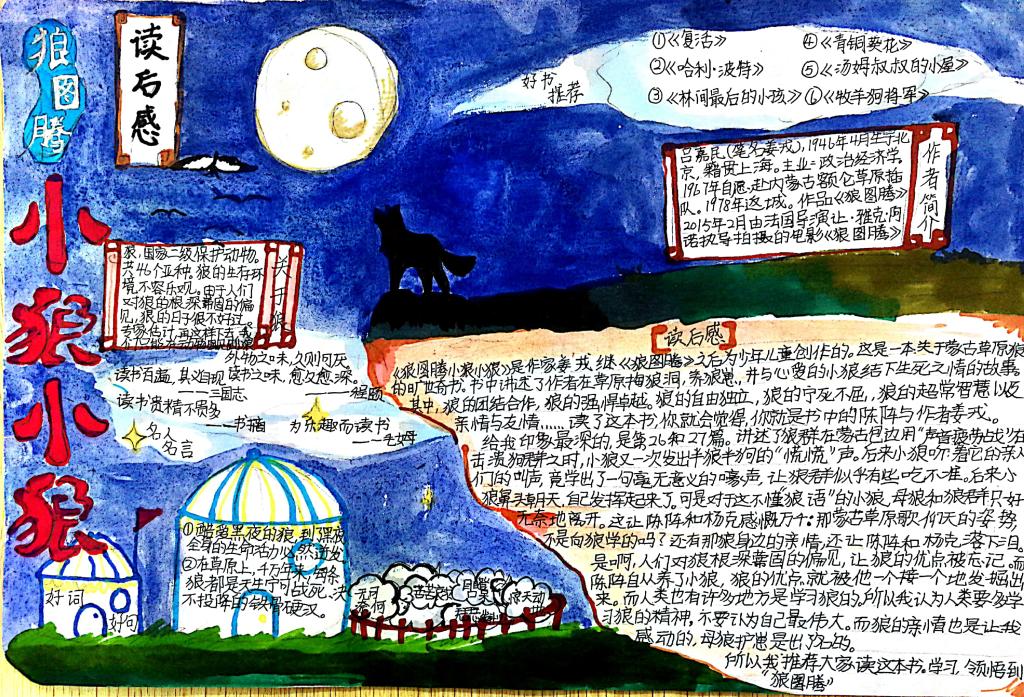 狼图腾
读后感
小狼小狼
好书
推荐
①《复活》
④《青铜葵花》
②《哈利·波特》
⑤《汤姆叔叔的小屋》
③《林间最后的小孩》
⑥《牧羊狗将军》
作者简介
吕嘉民(笔名姜戎),1946年4月生于北
京,籍贯上海。主业:政治经济学。
1967年自愿赴内蒙古额仑草原插
队。1978年返城。作品《狼图腾》
2015年2月由法国导演让·雅克·阿
诺执导拍摄的电影《狼图腾》
关于狼
狼,国家二级保护动物。
共46个亚种。狼的生存环
境不容乐观。由于人们
对狼的根深蒂固的偏
见,狼的日子很不好过。
外物之味,久则可厌
读书之味,愈久愈深。
——程颐
读书百遍,其义自现
——三国志
读书贵精不贵多
——书摘
为乐趣而读书
——毛姆
名人
名言
读后感
《狼图腾小狼小狼》是作家姜戎继《狼图腾》之后为少年儿童创作的。这是一本关于蒙古草原狼
的旷世奇书。书中讲述了作者在草原掏狼洞,养狼崽,并与心爱的小狼结下生死之情的故事。
其中,狼的团结合作,狼的强悍卓越,狼的自由独立,狼的宁死不屈,狼的超常智慧以及
亲情与友情……读了这本书,你就会觉得,你就是书中的陈阵与作者姜戎。
给我印象最深的,是第26和27篇。讲述了狼群在蒙古包边用“声音疲劳战”在
击溃狗群之时,小狼又一次发出半狼半狗的“慌慌”声。后来小狼听着它的亲人
们的叫声,竟学出了一句毫无意义的嚎声,让狼群似乎有些吃不准。后来小
狼鼻子朝天,自己发挥起来了。可是对于这不懂狼语”的小狼,母狼和狼群只好
无奈地离开。这让陈阵和杨克感慨万千:那蒙古草原歌人们天的姿势,
不是向狼学的吗?还有那狼身边的亲情,还让陈阵和杨克落下泪。
是啊,人们对狼根深蒂固的偏见,让狼的优点被忘记。而
陈阵自从养了小狼,狼的优点,就被他一个接一个地发掘出
来。而人类也有许多地方是学习狼的。所以我认为人类要多学
习狼的精神,不要认为自己最伟大。而狼的亲情也是让我
感动的,母狼护崽是出了名的。
所以我推荐大家读这本书。学习,领悟到
“狼图腾”
①酷爱黑夜的狼,到了深夜
全身的生命活力必然迸发
②在草原上,千万年,每条
狼都是天生宁可战死,决
不投降的铁骨硬汉。
好词
好句
无可
奈何